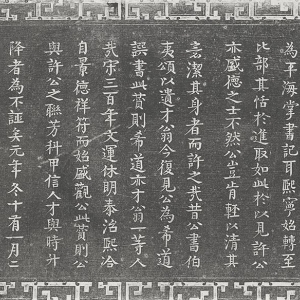 為平海掌書記耳熙寧始轉至
比部其恬於進取如此於以見許公
亦威德之士不然公豈肯輕以清其
意潔其身者而許之哉昔公書伯
夷頌以遺才翁今復見公為希道
誤書此賛則希道亦才翁一等人
哉宋三百年文運休明泰治熙洽
自景德祥符而始盛觀公此賛則公
與許公之聯芳科甲信人才與時升
降者為不誣矣元年冬十有一月二